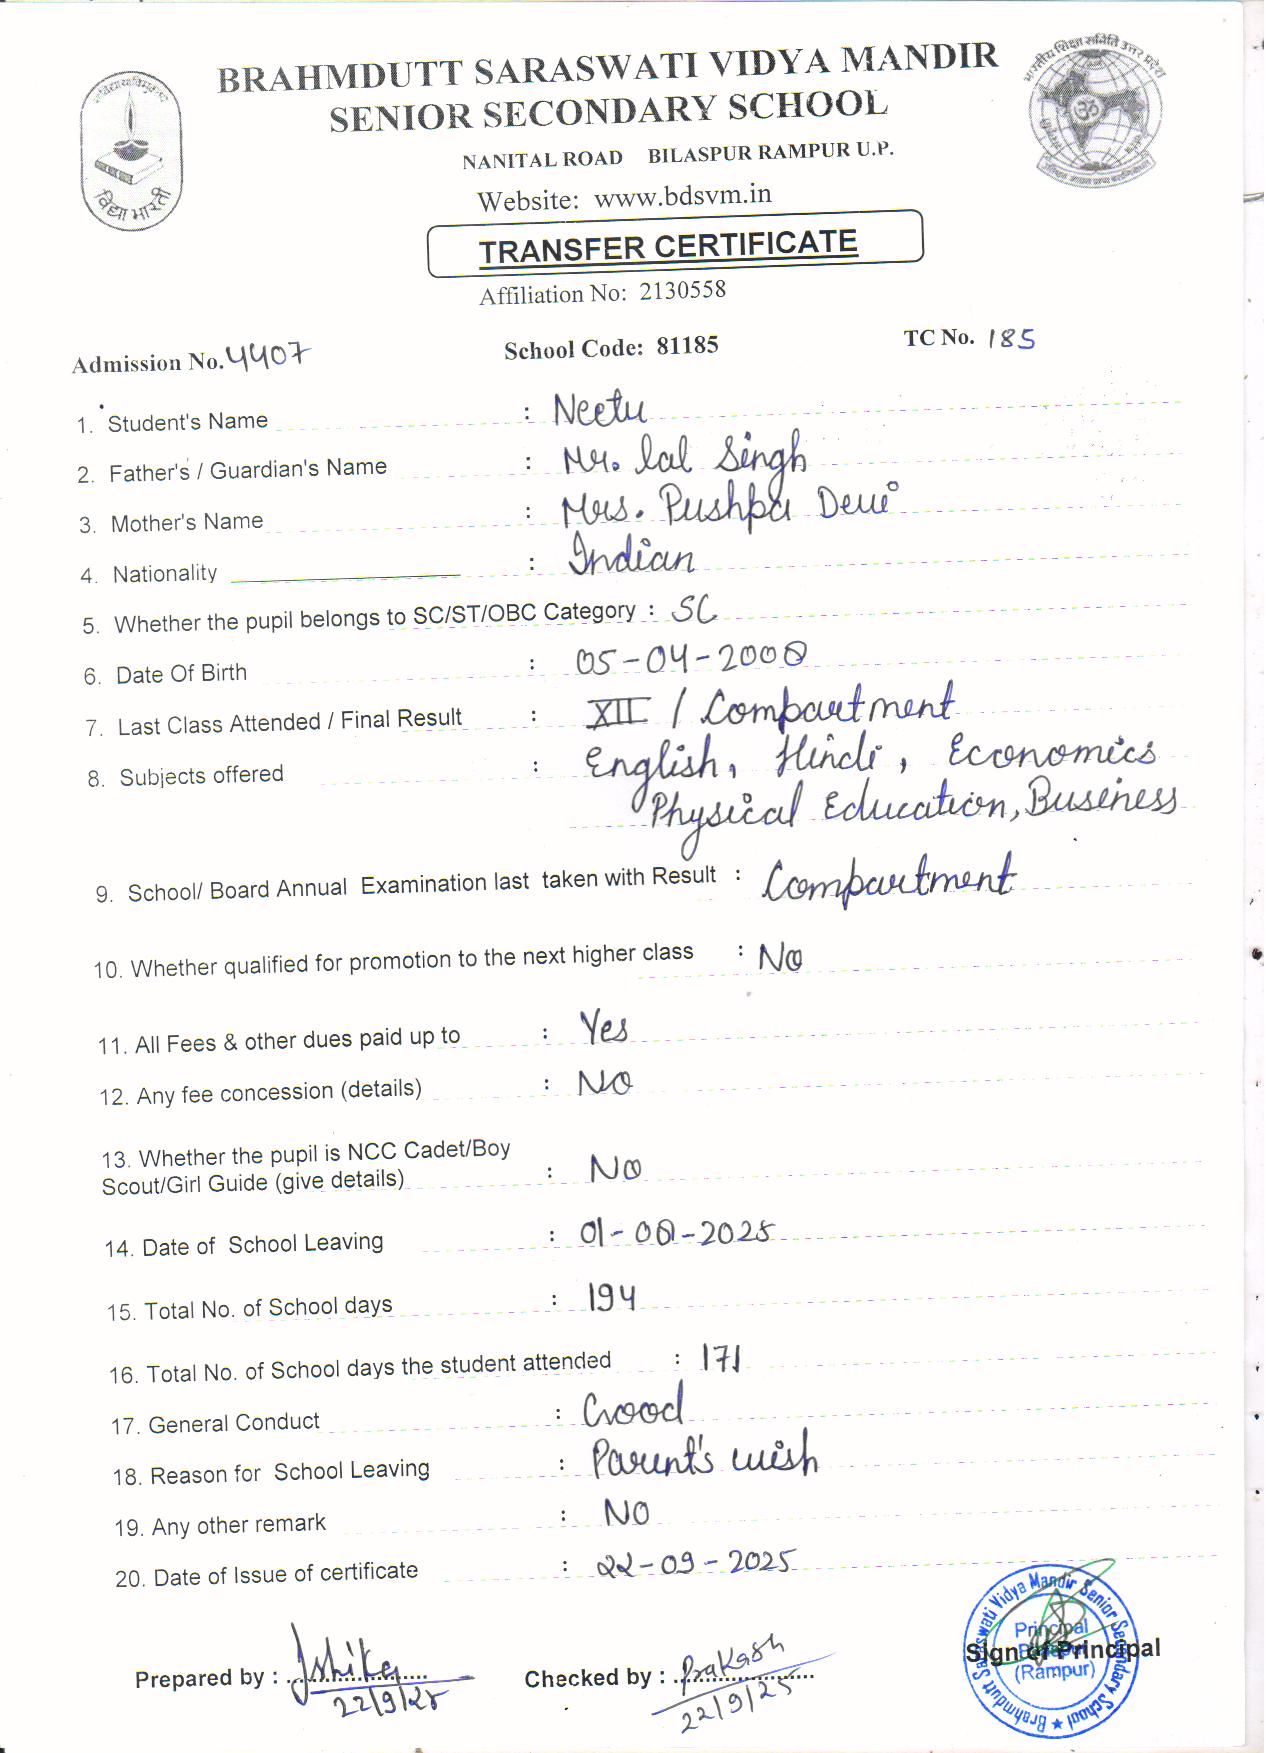 BRAHMDUTT SARASWATI VIDYA MANDIR
SENIOR SECONDARY SCHOOL
NANITAL ROAD BILASPUR RAMPUR U.P.
Website: www.bdsvm.in
विद्या भारती
भारतीय शिक्षा समिति उत्तर प्रदेश
TRANSFER CERTIFICATE
Affiliation No: 2130558
Admission No. 4407 School Code: 81185 TC No. 185
1. Student's Name : Neetu
2. Father's / Guardian's Name : Mr. lal Singh
3. Mother's Name : Mrs. Pushpa Devi
4. Nationality : Indian
5. Whether the pupil belongs to SC/ST/OBC Category : SC
6. Date Of Birth : 05-04-2008
7. Last Class Attended / Final Result : XII / Compartment
8. Subjects offered : English, Hindi, Economics
Physical Education, Business
9. School/ Board Annual Examination last taken with Result : Compartment
10. Whether qualified for promotion to the next higher class : No
11. All Fees & other dues paid up to : Yes
12. Any fee concession (details) : No
13. Whether the pupil is NCC Cadet/Boy
Scout/Girl Guide (give details) : No
14. Date of School Leaving : 01-08-2025
15. Total No. of School days : 194
16. Total No. of School days the student attended : 171
17. General Conduct : Good
18. Reason for School Leaving : Parent's wish
19. Any other remark : NO
20. Date of Issue of certificate : 22-09-2025
Prepared by : Ishika Checked by : Prakash Sign of Principal
22/9/25 22/9/25
Brahmdutt Saraswati Vidya Mandir Senior Secondary School
Principal
(Rampur)